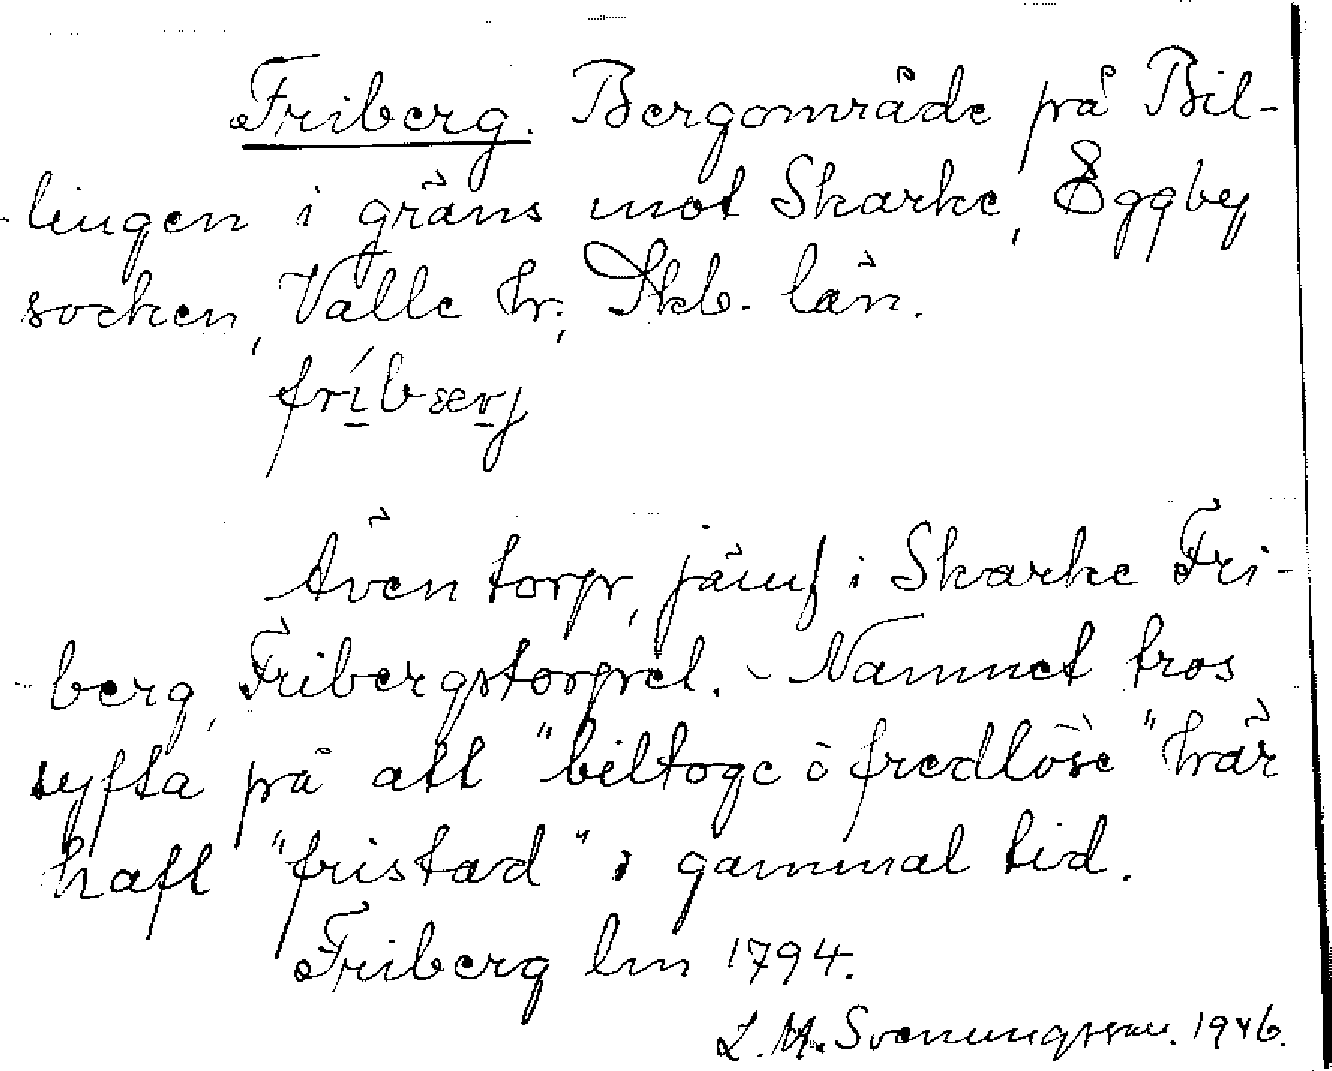 Friberg. Bergområde på Bil-
lingen i gräns mot Skarke, Eggby
socken, Valle hr., Skb. län.
fríbærj
Även torp, jämf i Skarke Fri-
berg, Fribergstorpet. - Namnet tros
syfta på att "biltoge o fredlöse" här
haft "fristad" i gammal tid.
Friberg lm 1794.
L. M. Svenungsson. 1946.